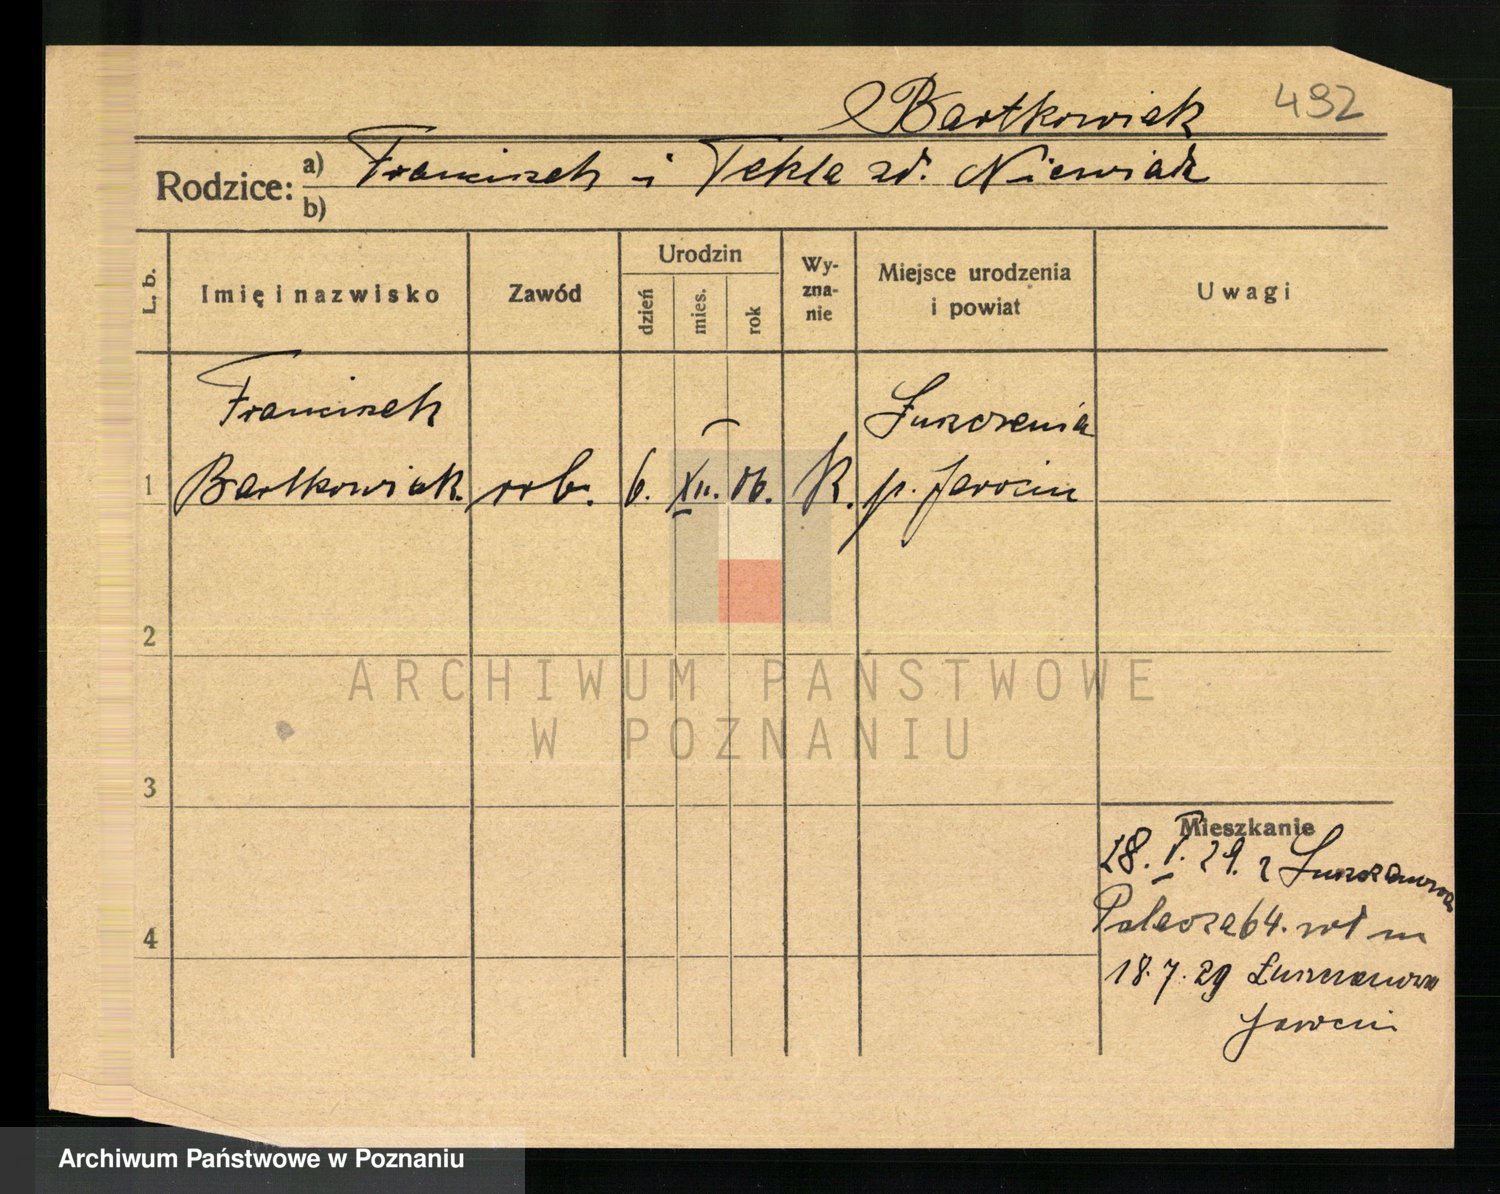 Bartkowiak 492
Rodzice: a) Franciszek i Tekla zd. Niewiak
b)
L. b.
Imię i nazwisko
Zawód
Urodzin
dzień
mies.
rok
Wy-
zna-
nie
Miejsce urodzenia
i powiat
Uwagi
Franciszek
Łuszczenia
1 Bartkowiak. rob. 6. XII. 06. K. p. Jarocin
2
3
4
Mieszkanie
28. V. 29. z
Palacza 64.
18.7.29
Jarocin
ARCHIWUM PAŃSTWOWE
W POZNANIU
Archiwum Państwowe w Poznaniu